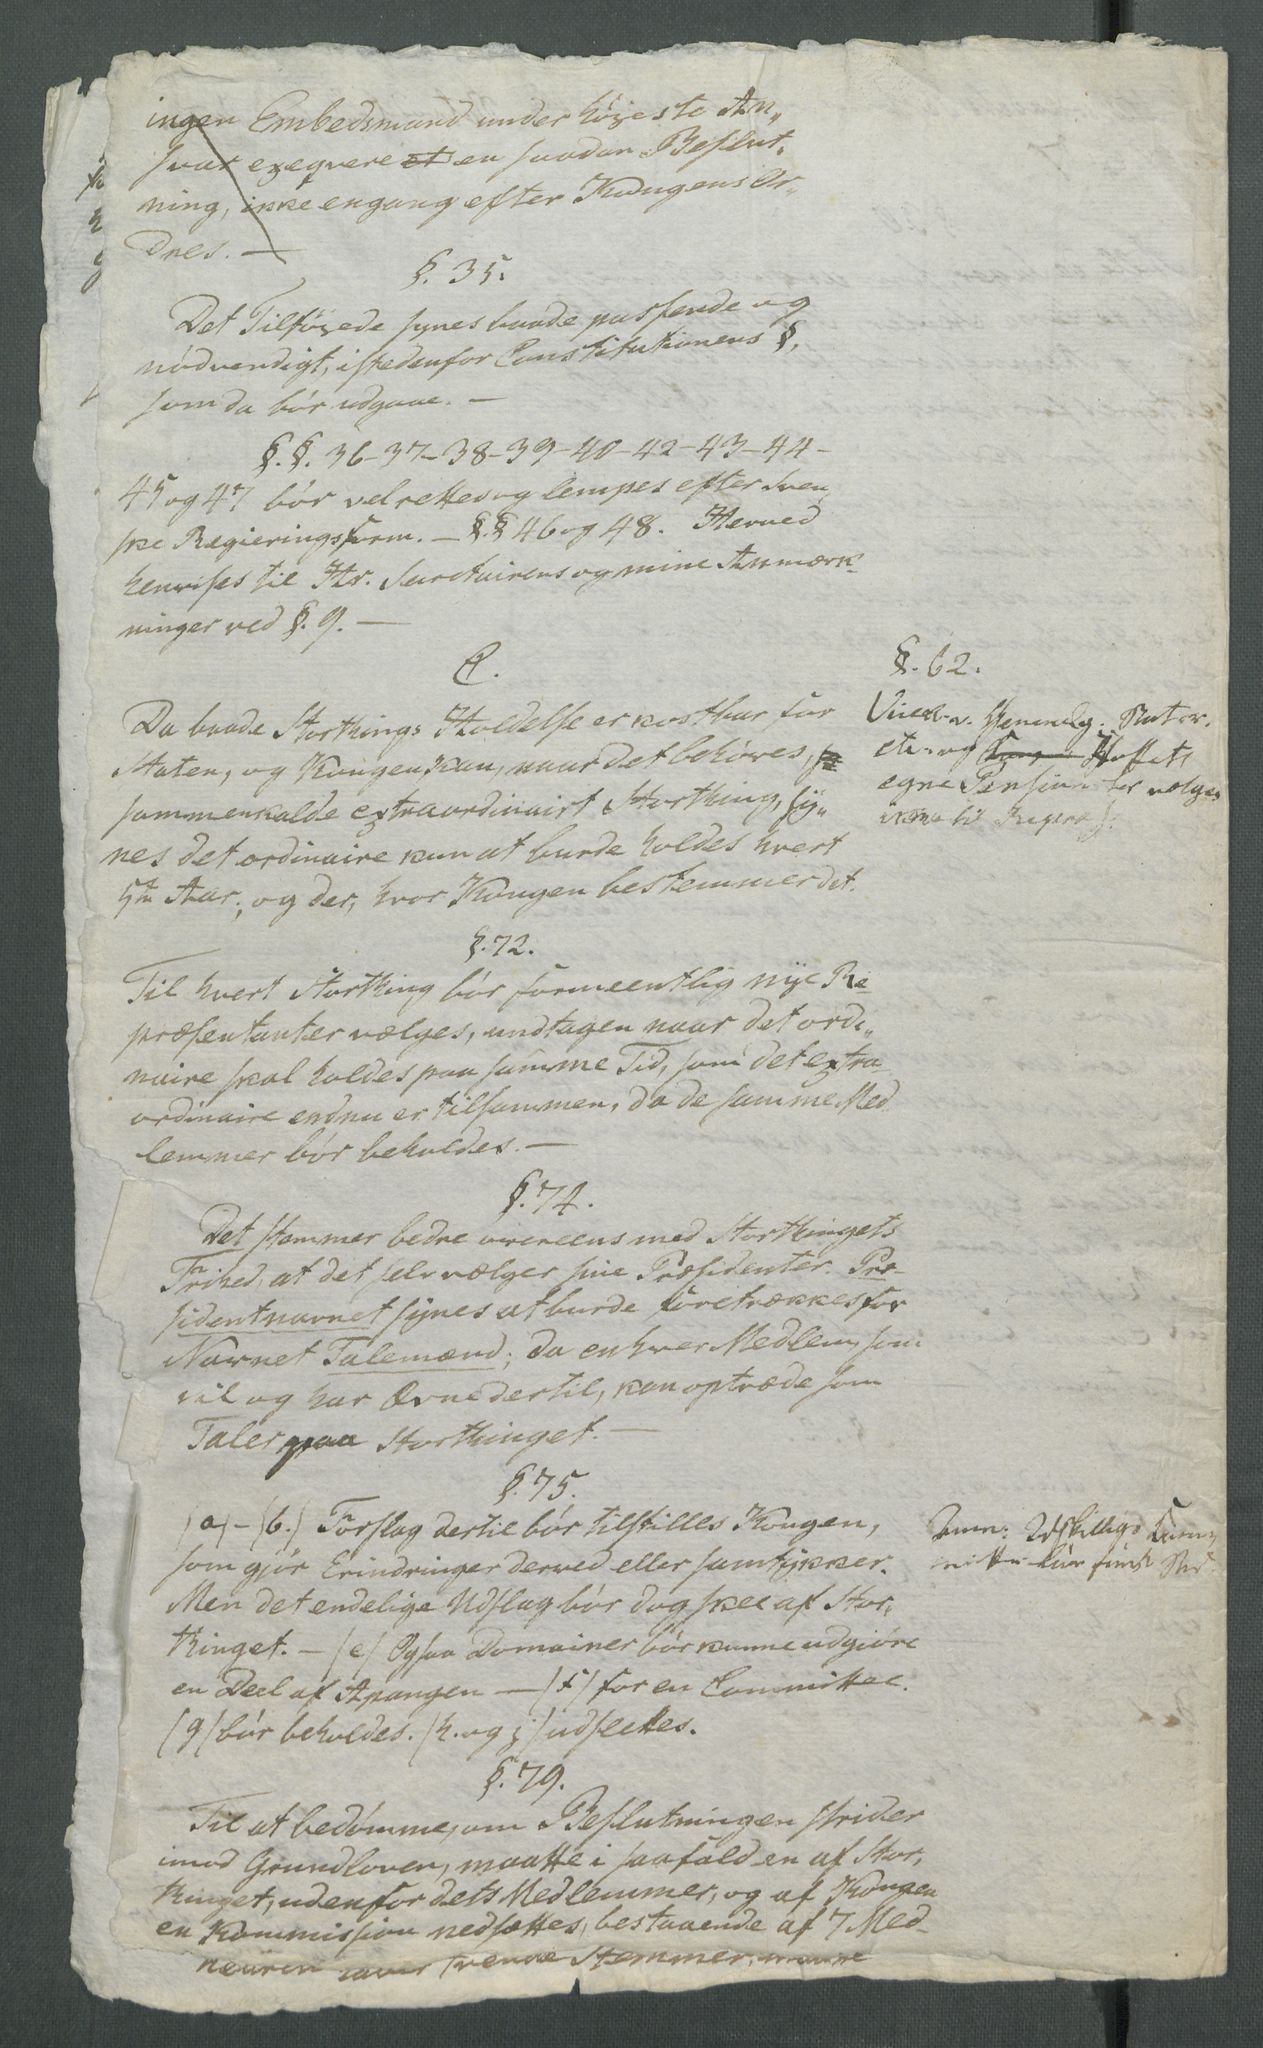 ingen Embedsmand under höieste An„
svar exeqvere et en saadan Beslut„
ning, ikke engang efter Kongens Or„
dres. —
§. 35.
Det Tilföiede synes baade passende og
nödvendigt, istedenfor Constitutionens §,
som da bör udgaae. —
§.§. 36-37-38-39-40-42-43-44-
45 og 47 bör vel rettes og lempes efter Sven„
ske Regieringsform. — §.§ 46 og 48. Herved
henvises til Hr. Secretairens og mine Anmærk-
ninger ved §. 9. —
C.
Da baade Storthings Holdelse er kostbar for
Staten, og Kongen kan, naar det behöves,
sammenkalde extraordinairt Storthing, sy„
nes det ordinaire kun at burde holdes hvert
5te Aar; og der, hvor Kongen bestemmer det.
§. 62.
og Hoffets
egne Pension vælges
ikke til Repræs:
§. 72.
Til hvert Storthing bör formeentlig nÿe Re
præsentanter vælges, undtagen naar det ordi„
naire skal holdes paa samme Tid, som det extra
ordinaire endnu er tilsammen, da de samme Med
lemmer bör beholdes. —
§. 74.
Det stemmer bedre overeens med Storthingets
Frihed, at det selv vælger sine Præsidenter. Præ-
sidentnavnet synes at burde foretrækkes for
Navnet Talemænd; da enhver Medlem, som
vil og har Ævne dertil, kan optræde som
Taler paa Storthinget. —
§. 75.
(a) - (b.) Forslag dertil bör tilstilles Kongen,
som gjör Erindringer derved eller samtÿkker.
Men det endelige Udslag bör dog skee af Stor„
thinget. — (e) Ogsaa Domainer bör kunne udgiöre
en Deel af Apangen — (f) for en Committee.
(g) bör beholdes. (h. og i) udslettes.
Anm:
§. 79.
Til at bedömme, om Beslutningen strider
imod Grundloven, maatte i saafald en af Stor„
thinget, udenfor dets Medlemmer, og af Kongen
en Kommission nedsættes, bestaaende af 7 Med
Stemmer,